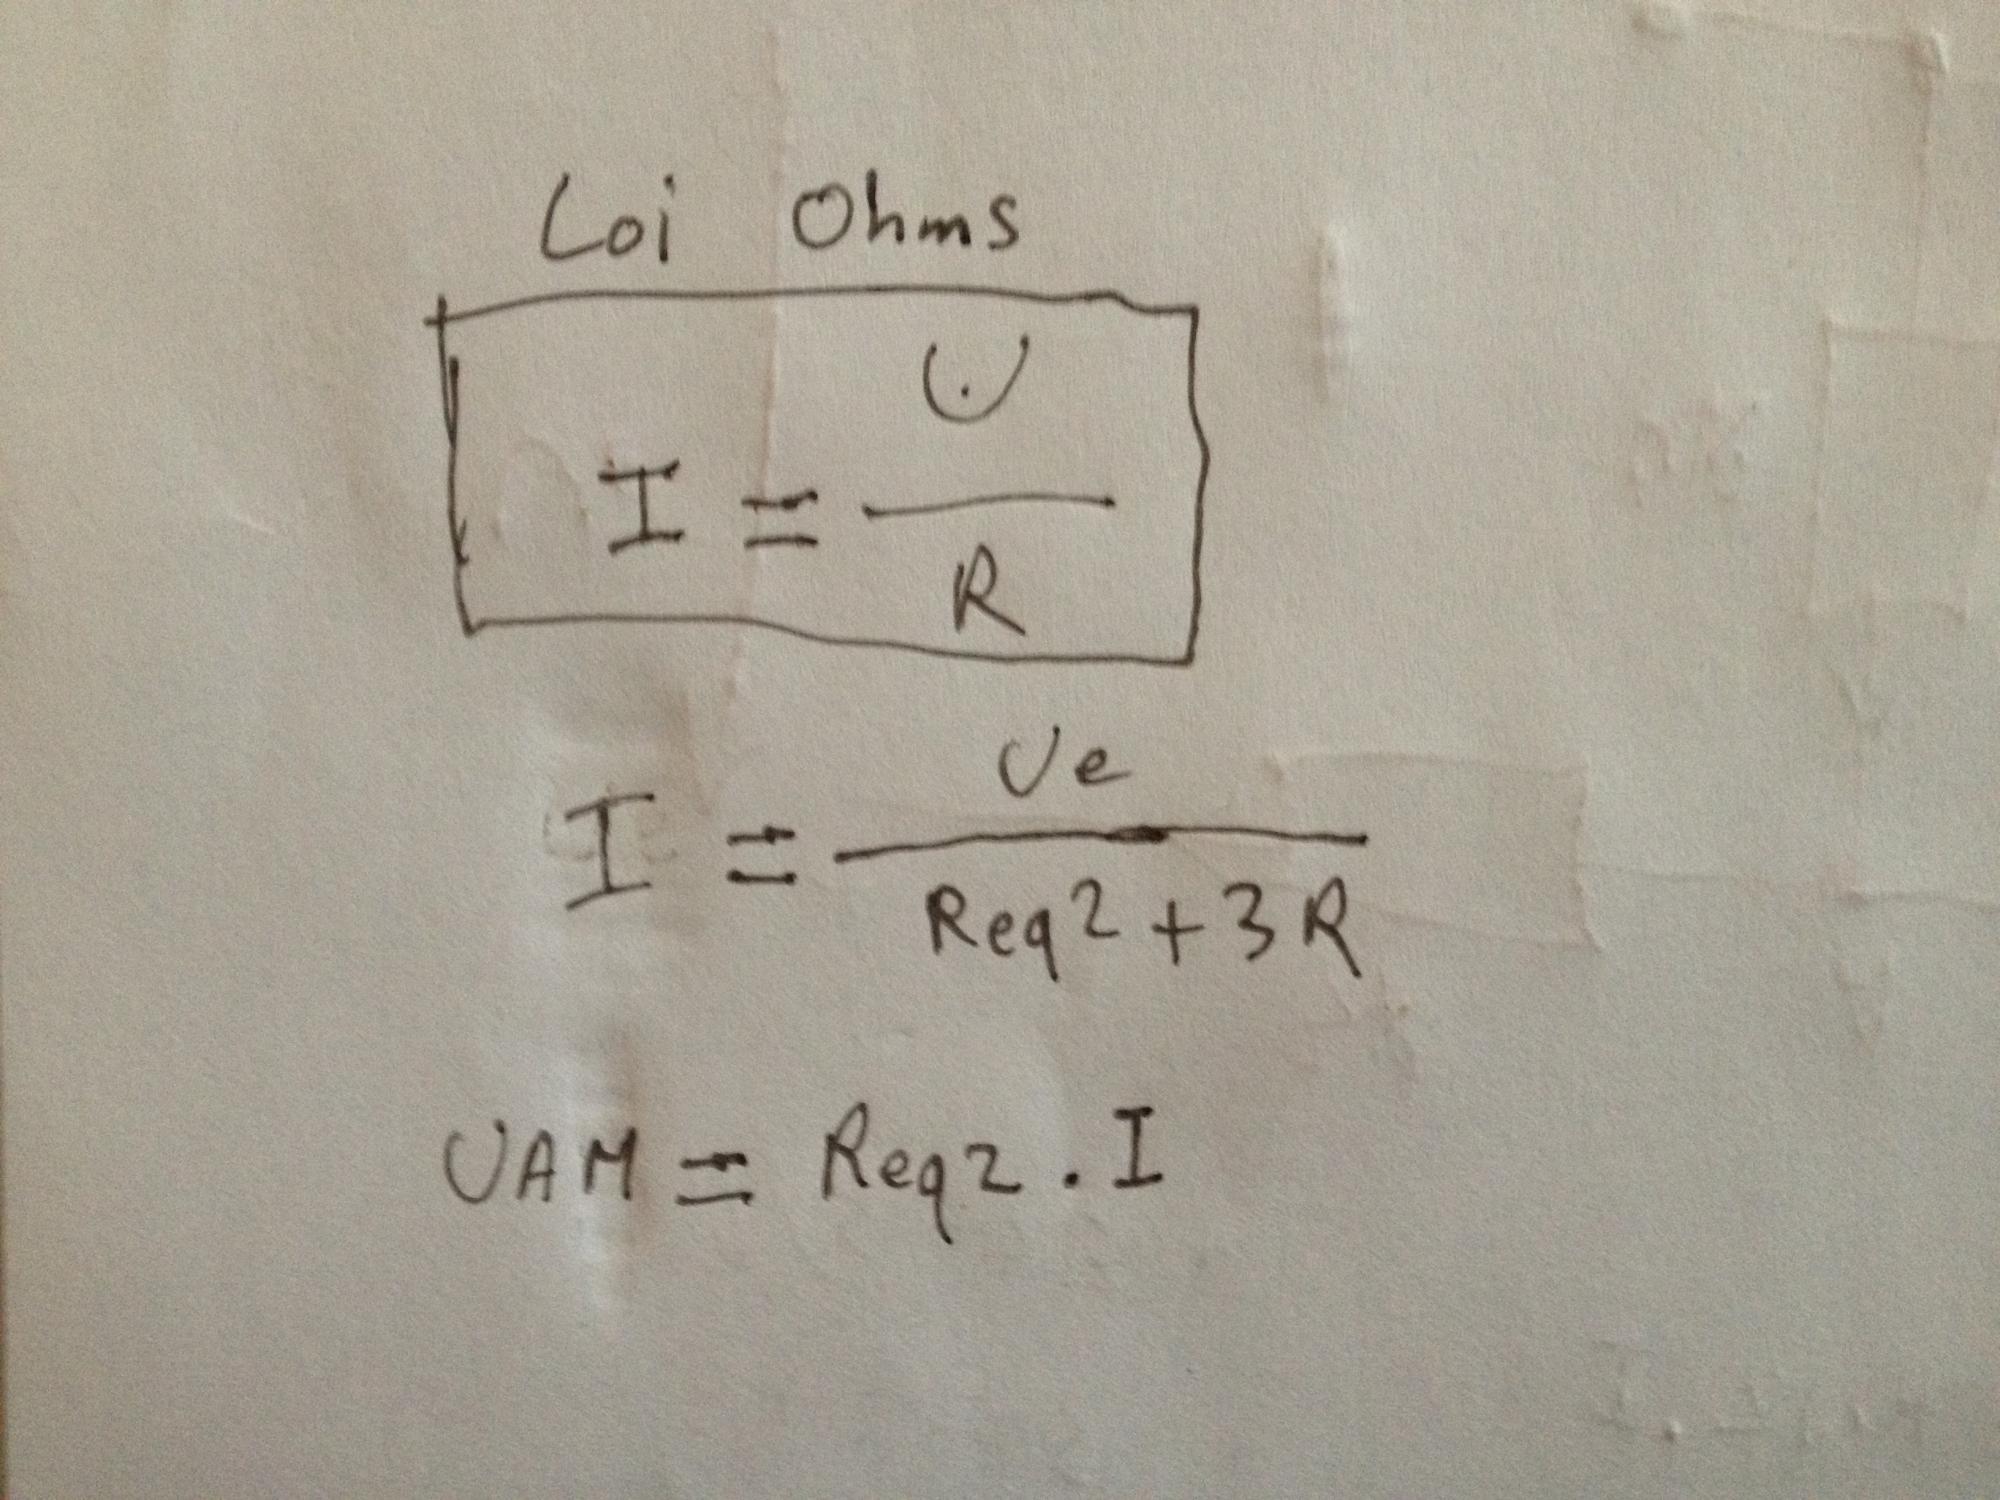 Loi Ohms
I = U / R
I = Ue / Req2 + 3R
UAM = Req2 . I